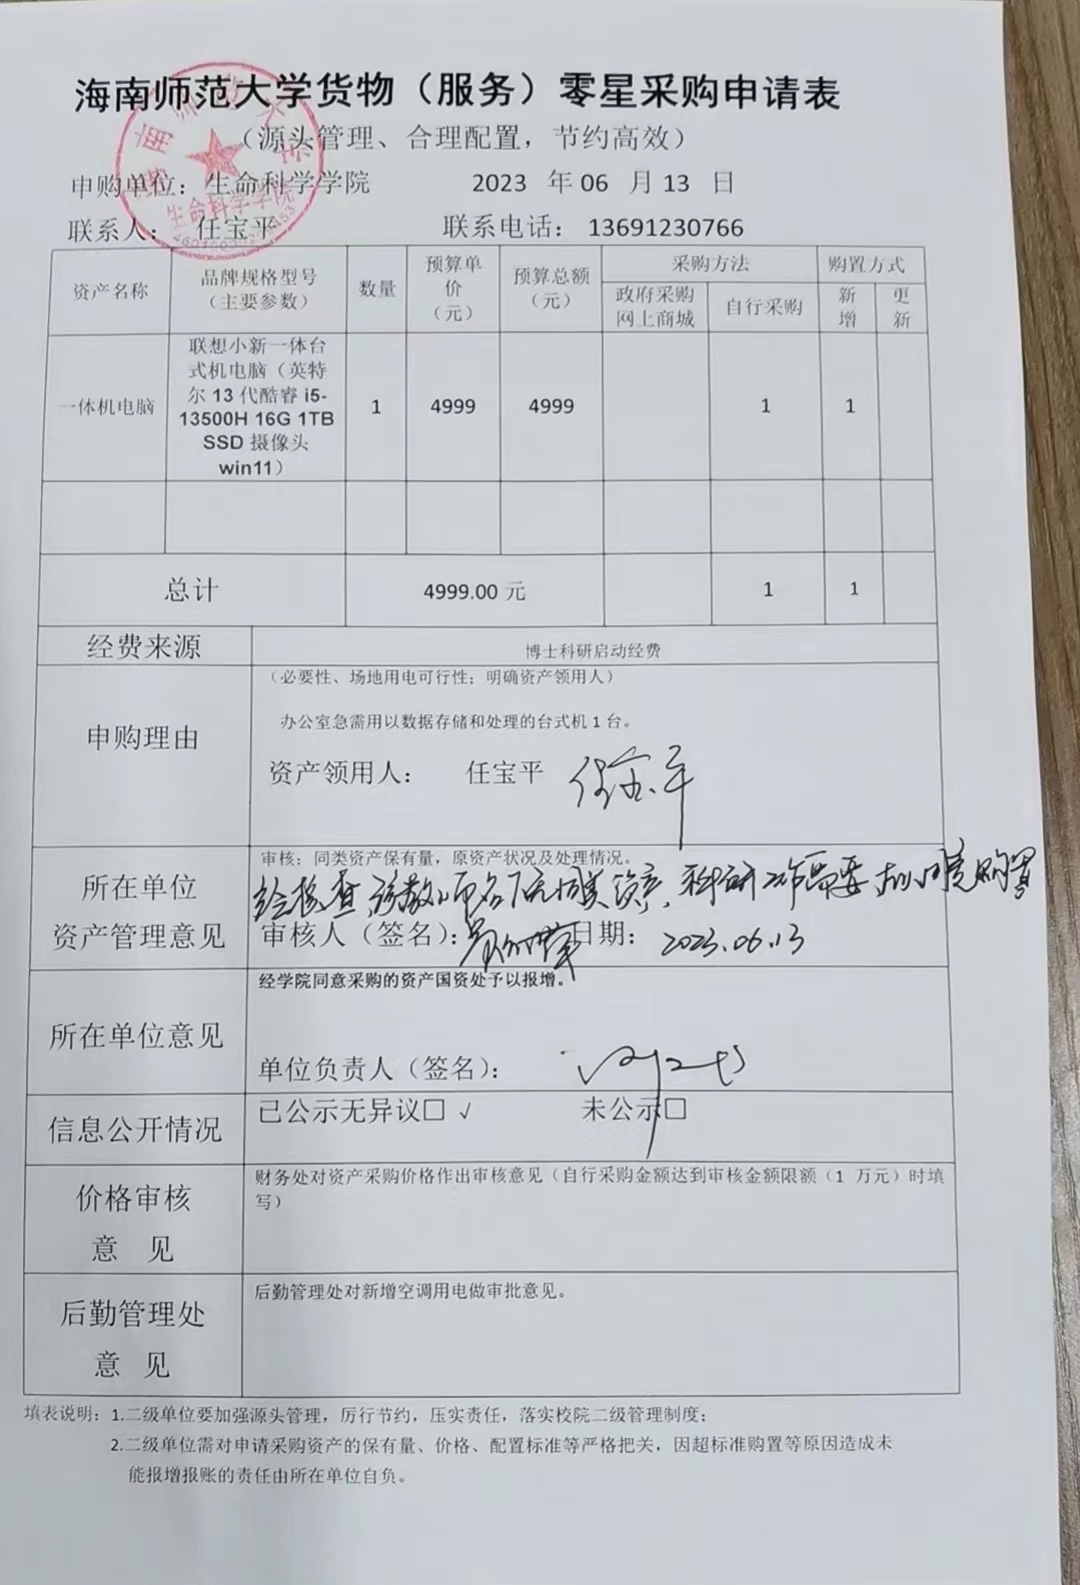 海南师范大学货物（服务）零星采购申请表
（源头管理、合理配置，节约高效）
申购单位：生命科学学院 2023 年 06 月 13 日
联系人： 任宝平 联系电话： 13691230766
生命科学学院
资产名称 品牌规格型号（主要参数） 数量 预算单价（元） 预算总额（元） 采购方法 购置方式
政府采购网上商城 自行采购 新增 更新
一体机电脑 1 4999 4999 1 1
联想小新一体台
式机电脑（英特
尔 13 代酷睿 i5-
13500H 16G 1TB
SSD 摄像头
win11）
总计 4999.00 元 1 1
经费来源 博士科研启动经费
申购理由
（必要性、场地用电可行性；明确资产领用人）
办公室急需用以数据存储和处理的台式机 1 台。
资产领用人： 任宝平 任宝平
所在单位
资产管理意见
审核：同类资产保有量，原资产状况及处理情况。
经核查，该教师名下无同类资产，科研工作需要，拟同意购置
审核人（签名）： 日期： 2023.06.13
所在单位意见
经学院同意采购的资产国资处予以报增。
单位负责人（签名）：
信息公开情况 已公示无异议□ √ 未公示□
价格审核
意 见
财务处对资产采购价格作出审核意见（自行采购金额达到审核金额限额（1 万元）时填
写）
后勤管理处
意 见
后勤管理处对新增空调用电做审批意见。
填表说明：1.二级单位要加强源头管理，厉行节约，压实责任，落实校院二级管理制度；
2.二级单位需对申请采购资产的保有量、价格、配置标准等严格把关，因超标准购置等原因造成未
能报增报账的责任由所在单位自负。